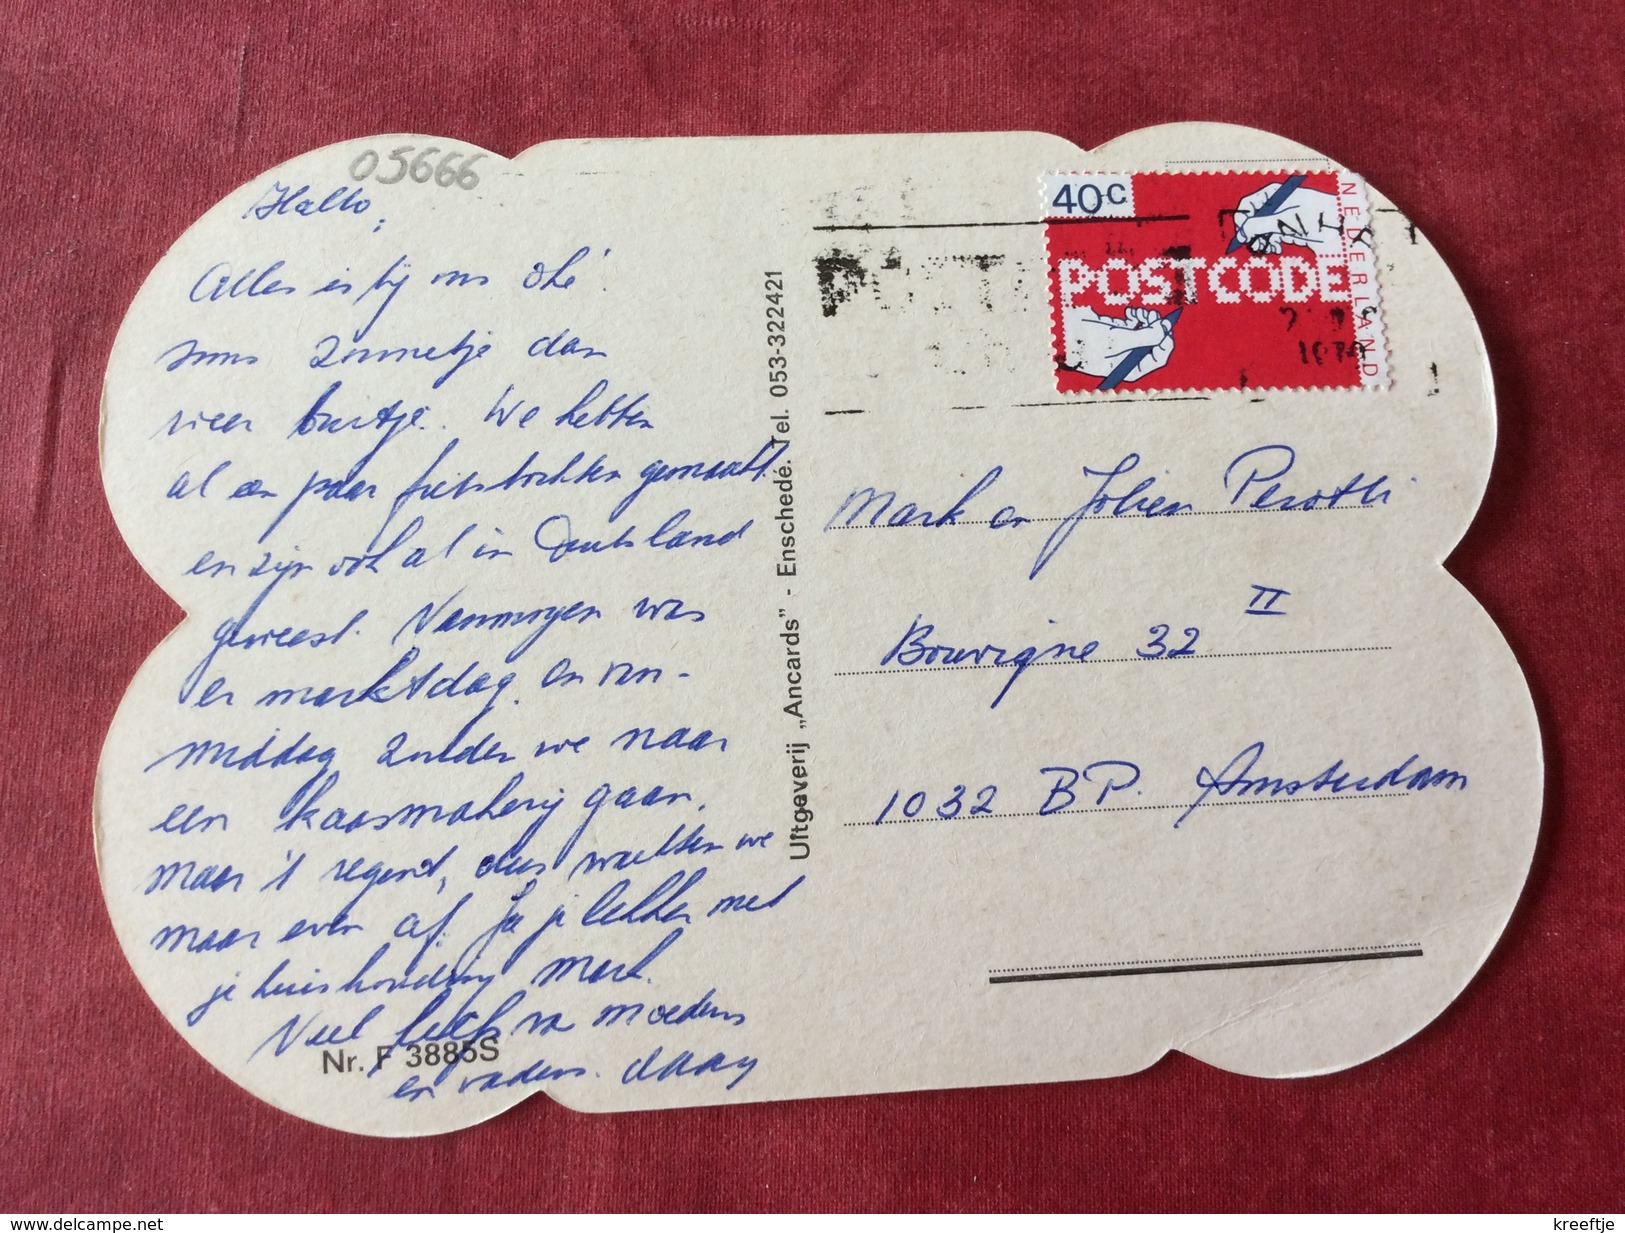 05666
Hallo,
Alles is bij ons oké!
soms zonnetje dan
weer buitje. We hebben
al een paar fietstochten gemaakt
en zijn ook al in Duitsland
geweest. Vanmorgen was
er marktdag. en van-
middag zouden we naar
een kaasmakerij gaan.
maar 't regent, dus wachten we
maar even af. je lekker met
je huishouding Mark.
Veel liefs van moeders
en vaders. daag
Nr. F 3885S
Uitgeverij „Ancards” - Enschedé. Tel. 053-322421
40 c
NEDERLAND
POSTCODE
Mark en Jolien Perotti
Bouvigne 32 II
1032 BP. Amsterdam
www.delcampe.net
kreeftje